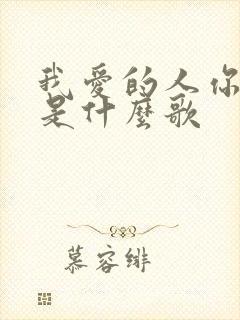 我爱的人你
是什麼歌
慕容绯